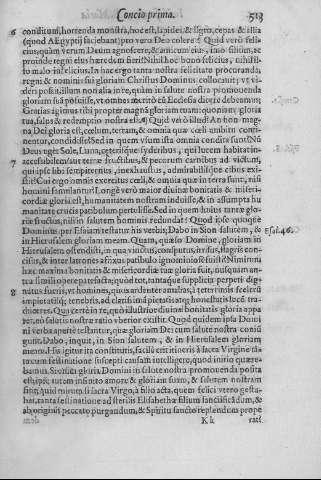 Concio prima. 513
6 conditum, horrenda monstra, hoc est, lapidei, & ligni, cepas & allia
(quod AEgyptij faciebant) pro vero Deo colere? Quid verò felicius,
quàm verum Deum agnoscere, & amicum eius, imò filium, ac
proinde regni eius hæredem fieri? Nihil hoc bono felicius, nihil
isto malo infelicius. In hac ergo tanta nostra felicitate procuranda,
regni & nominis sui gloriam Christus Dominus collocauit; vt videri
possit, illum non alia in re, quàm in salute nostra promouenda
gloriam suã posuisse, vt omnes meritò cũ Ecclesia dicere debeamus:
Gratias agimus tibi propter magnã gloriam tuam: quoniam gloria
tua, salus & redemptio nostra est. Quid verò illud? An non magna
Dei gloria est, cœlum, terram, & omnia quæ cœli ambitu continentur,
condidisse? Sed in quem vsum ista omnia condita sunt? Nũ
Deus eget Sole, Luna, cæterisque syderibus, qui lucem habitat inaccessibilem?
7 aut terræ fructibus, & pecorum carnibus ad victum,
qui ipse sibi sempiternus, inexhaustus, admirabilisque cibus existit?
Cui ergo omnis exercitus cœli, & omnia quæ in terra sunt, nisi
homini famulantur? Longè verò maior diuinæ bonitatis & misericordiæ
gloria est, humanitatem nostram induisse, & in assumpta humanitate
crucis patibulum pertulisse. Sed in quem huius tantæ gloriæ
fructus, nisi in salutem hominis redundat? Quod ipse quoque
Dominus per Esaiam testatur his verbis; Dabo in Sion salutem, & Esai. 46.
in Hierusalem gloriam meam. Quam, quæso Domine, gloriam in
Hierusalem ostendisti, in qua vinctus, consputus, irrisus, flagris concisus,
& inter latrones affixus patibulo ignominiosè fuisti? Nimirum
hæc maxima bonitatis & misericordiæ tuæ gloria fuit, nusquam antea
simili opere patefacta; quòd tot, tantaque supplicij perpeti dignatus
8 fueris, vt homines, quos ardenter amabas, à teterrimis sceleris
impietatisque tenebris, ad clarissimã pietatis atque honestatis lucẽ traduceres.
Qua certè in re, quò illustrior diuinæ bonitatis gloria apparet,
eò salutis nostræ ratio vberior existit. Quod quidem ipsa Domini
verba apertè testantur, quæ gloriam Dei cum salute nostra coniũgunt.
Dabo, inquit, in Sion salutem, & in Hierusalem gloriam
meam. His igitur ita constitutis, facilè cur itineris à sacra Virgine tã
tacum festinatione suscepti causam intelligetis, quod initio quærebamus.
Si enim gloria Domini in salute nostra promouenda posita
est, ipse autem infinito amore & gloriam suam, & salutem nostram
sitit, quid mirum si sacra Virgo, à filio acta, quem felici vtero gestabat,
tanta festinatione ad sterilis Elisabethæ filium sanctificãdum, &
ab originis peccato purgandum, & Spiritu sancto replendum properarit?
K k rarit